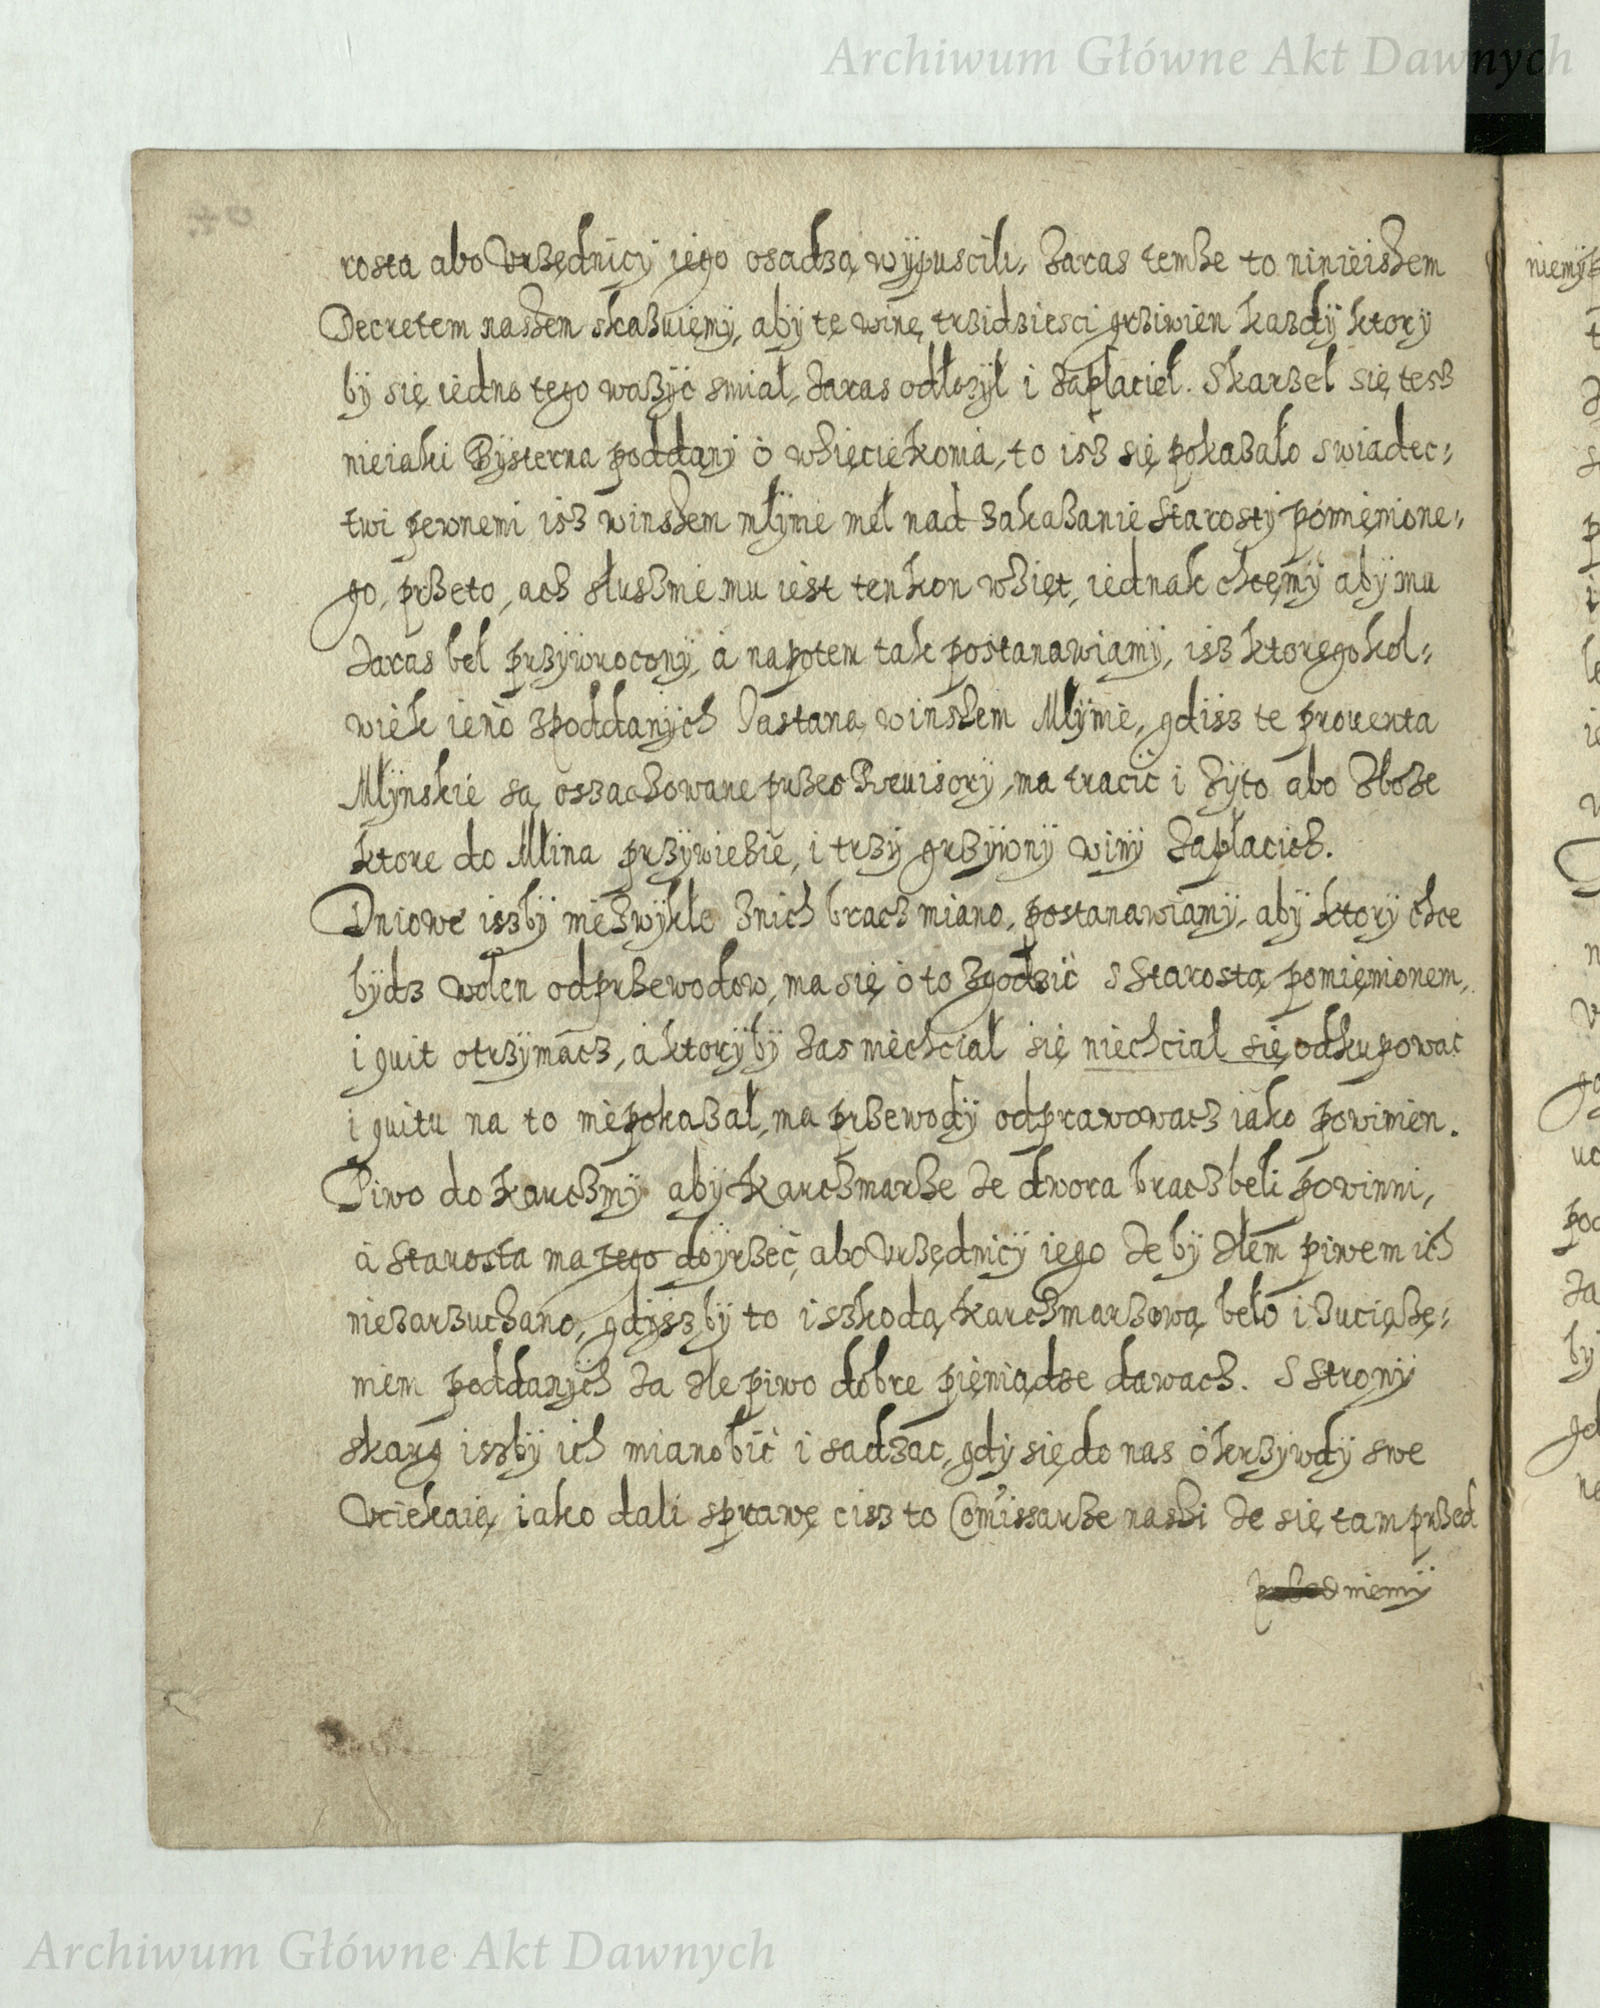 Archiwum Główne Akt Dawnych
rosta abo Vrzędnicÿ iego osadzą wÿpuscili, Zaras temże to ninieiszem
Decretem naszem skazuięmÿ, abÿ tę winę trzidziesci grziwien kazdÿ ktorÿ
bÿ się iedno tego wazÿć smiał, Zaras odłozÿł i zapłacieł. Skarzeł się tesz
nieiaki Pÿsterna poddanÿ o wzięcie konia, to isz się pokazało swiadec=
twi pewnemi isz winszem młÿnie meł nad zakazanie starostÿ pomięnione=
go, przeto, acz słuszmie mu iest ten kon wzięt, iednak chcęmÿ abÿ mu
Zaras beł przÿwroconÿ, á napotem tak postanawiamÿ, isz ktoregokol=
wiek ieno zpoddanÿch Zastaną winszem Młÿnie, gdisz te prouenta
Młÿnskie są oszaczowane przes Reuisorÿ, ma tracić i Zÿto abo Zboże
ktore do Młina przÿwiezie, i trzÿ grzÿwnÿ winÿ Zapłacicz.
Dniowe iszbÿ niezwÿkłe znich bracz miano, postanawiamÿ, abÿ ktorÿ chce
bÿdz wolen odprzewodow, ma się o to zgodzić s Starostą pomięnionem,
i quit otrzÿmacz, á ktorÿbÿ zas niechciał się niechciał się odkupować
i quitu na to niepokazał, ma przewodÿ odprawowacz iako powinien.
Piwo do karczmÿ abÿ karczmarze ze dwora bracz beli powinni,
á Starosta ma tego doÿrzeć, abo Vrzędnicÿ iego ze by złem piwem ich
niezarzuczano, gdÿsz bÿ to i szkodą karczmarzową beło i zuciąże=
niem poddanÿch Za złe piwo dobre pięniądze dawacz. S stronÿ
skarg iszbÿ ich miano bić i sadzać, gdÿ się do nas o krzÿwdÿ swe
Vciekaią, iako dali sprawę cisz to Com̃issarze naszi że się tam przed
niemÿ
Archiwum Główne Akt Dawnych